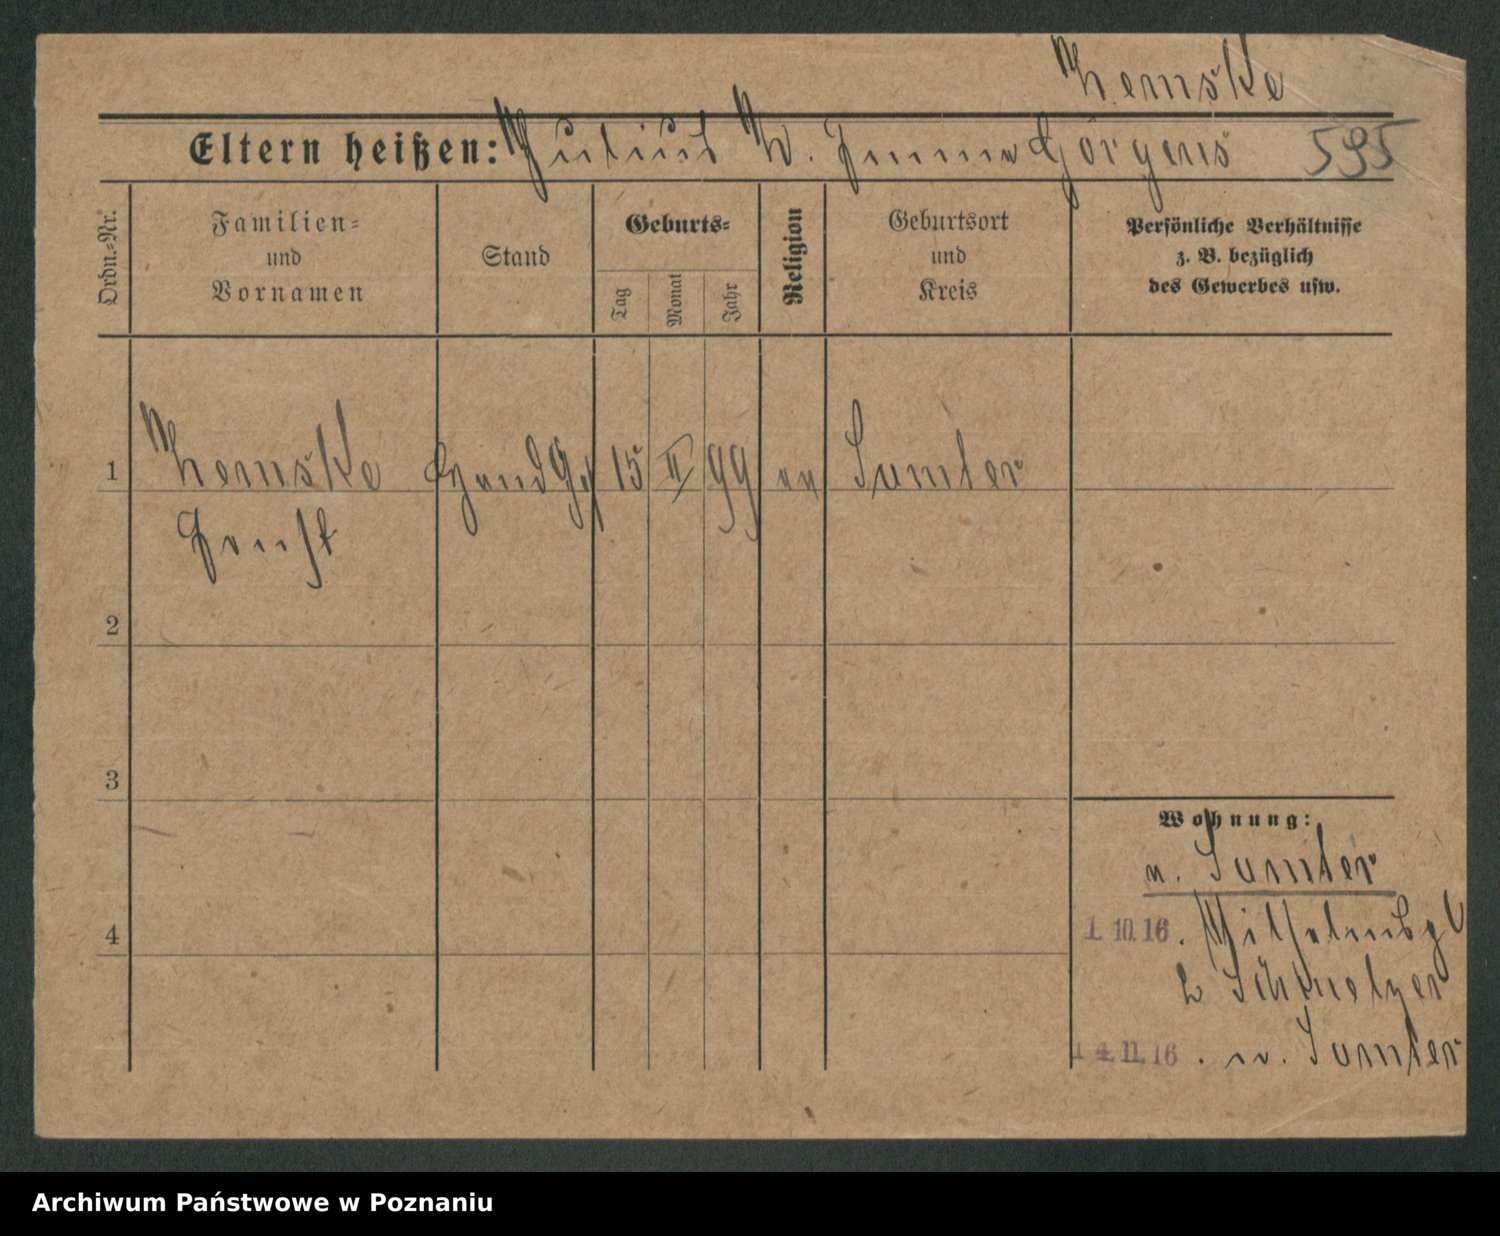 Zemske
Eltern heißen: Julius Z. Emma Görgens 595
Ordn.-Nr.
Familien=
und
Vornamen
Stand
Geburts=
Tag
Monat
Jahr
Religion
Geburtsort
und
Kreis
Persönliche Verhältnisse
z. B. bezüglich
des Gewerbes usw.
1 Zemske 15 II 99 ev Samter
Ernst
2
3
4
Wohnung:
n. Samter
1. 10. 16.
Schmelzer
1 4. 11. 16. n. Samter
Archiwum Państwowe w Poznaniu